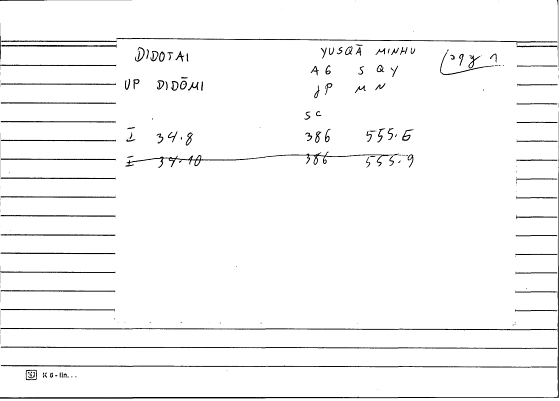 DIDOTAI YUSQĀ MINHU
AG S Q Y
UP DIDŌMI gP M N
SC
I 34.8 386 555.6
I 34.10 386 555.9
K 6 - lin...